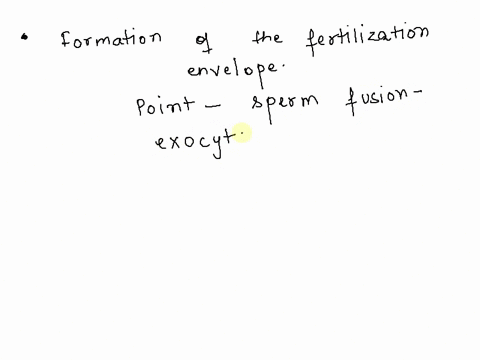 • Formation of the fertilization
envelope.
Point - sperm fusion-
exocyt